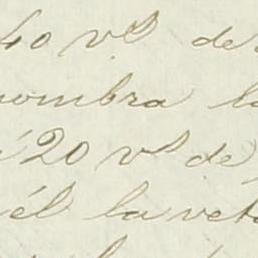 40 vs de
nombra la
á 20 vs de
él la veta